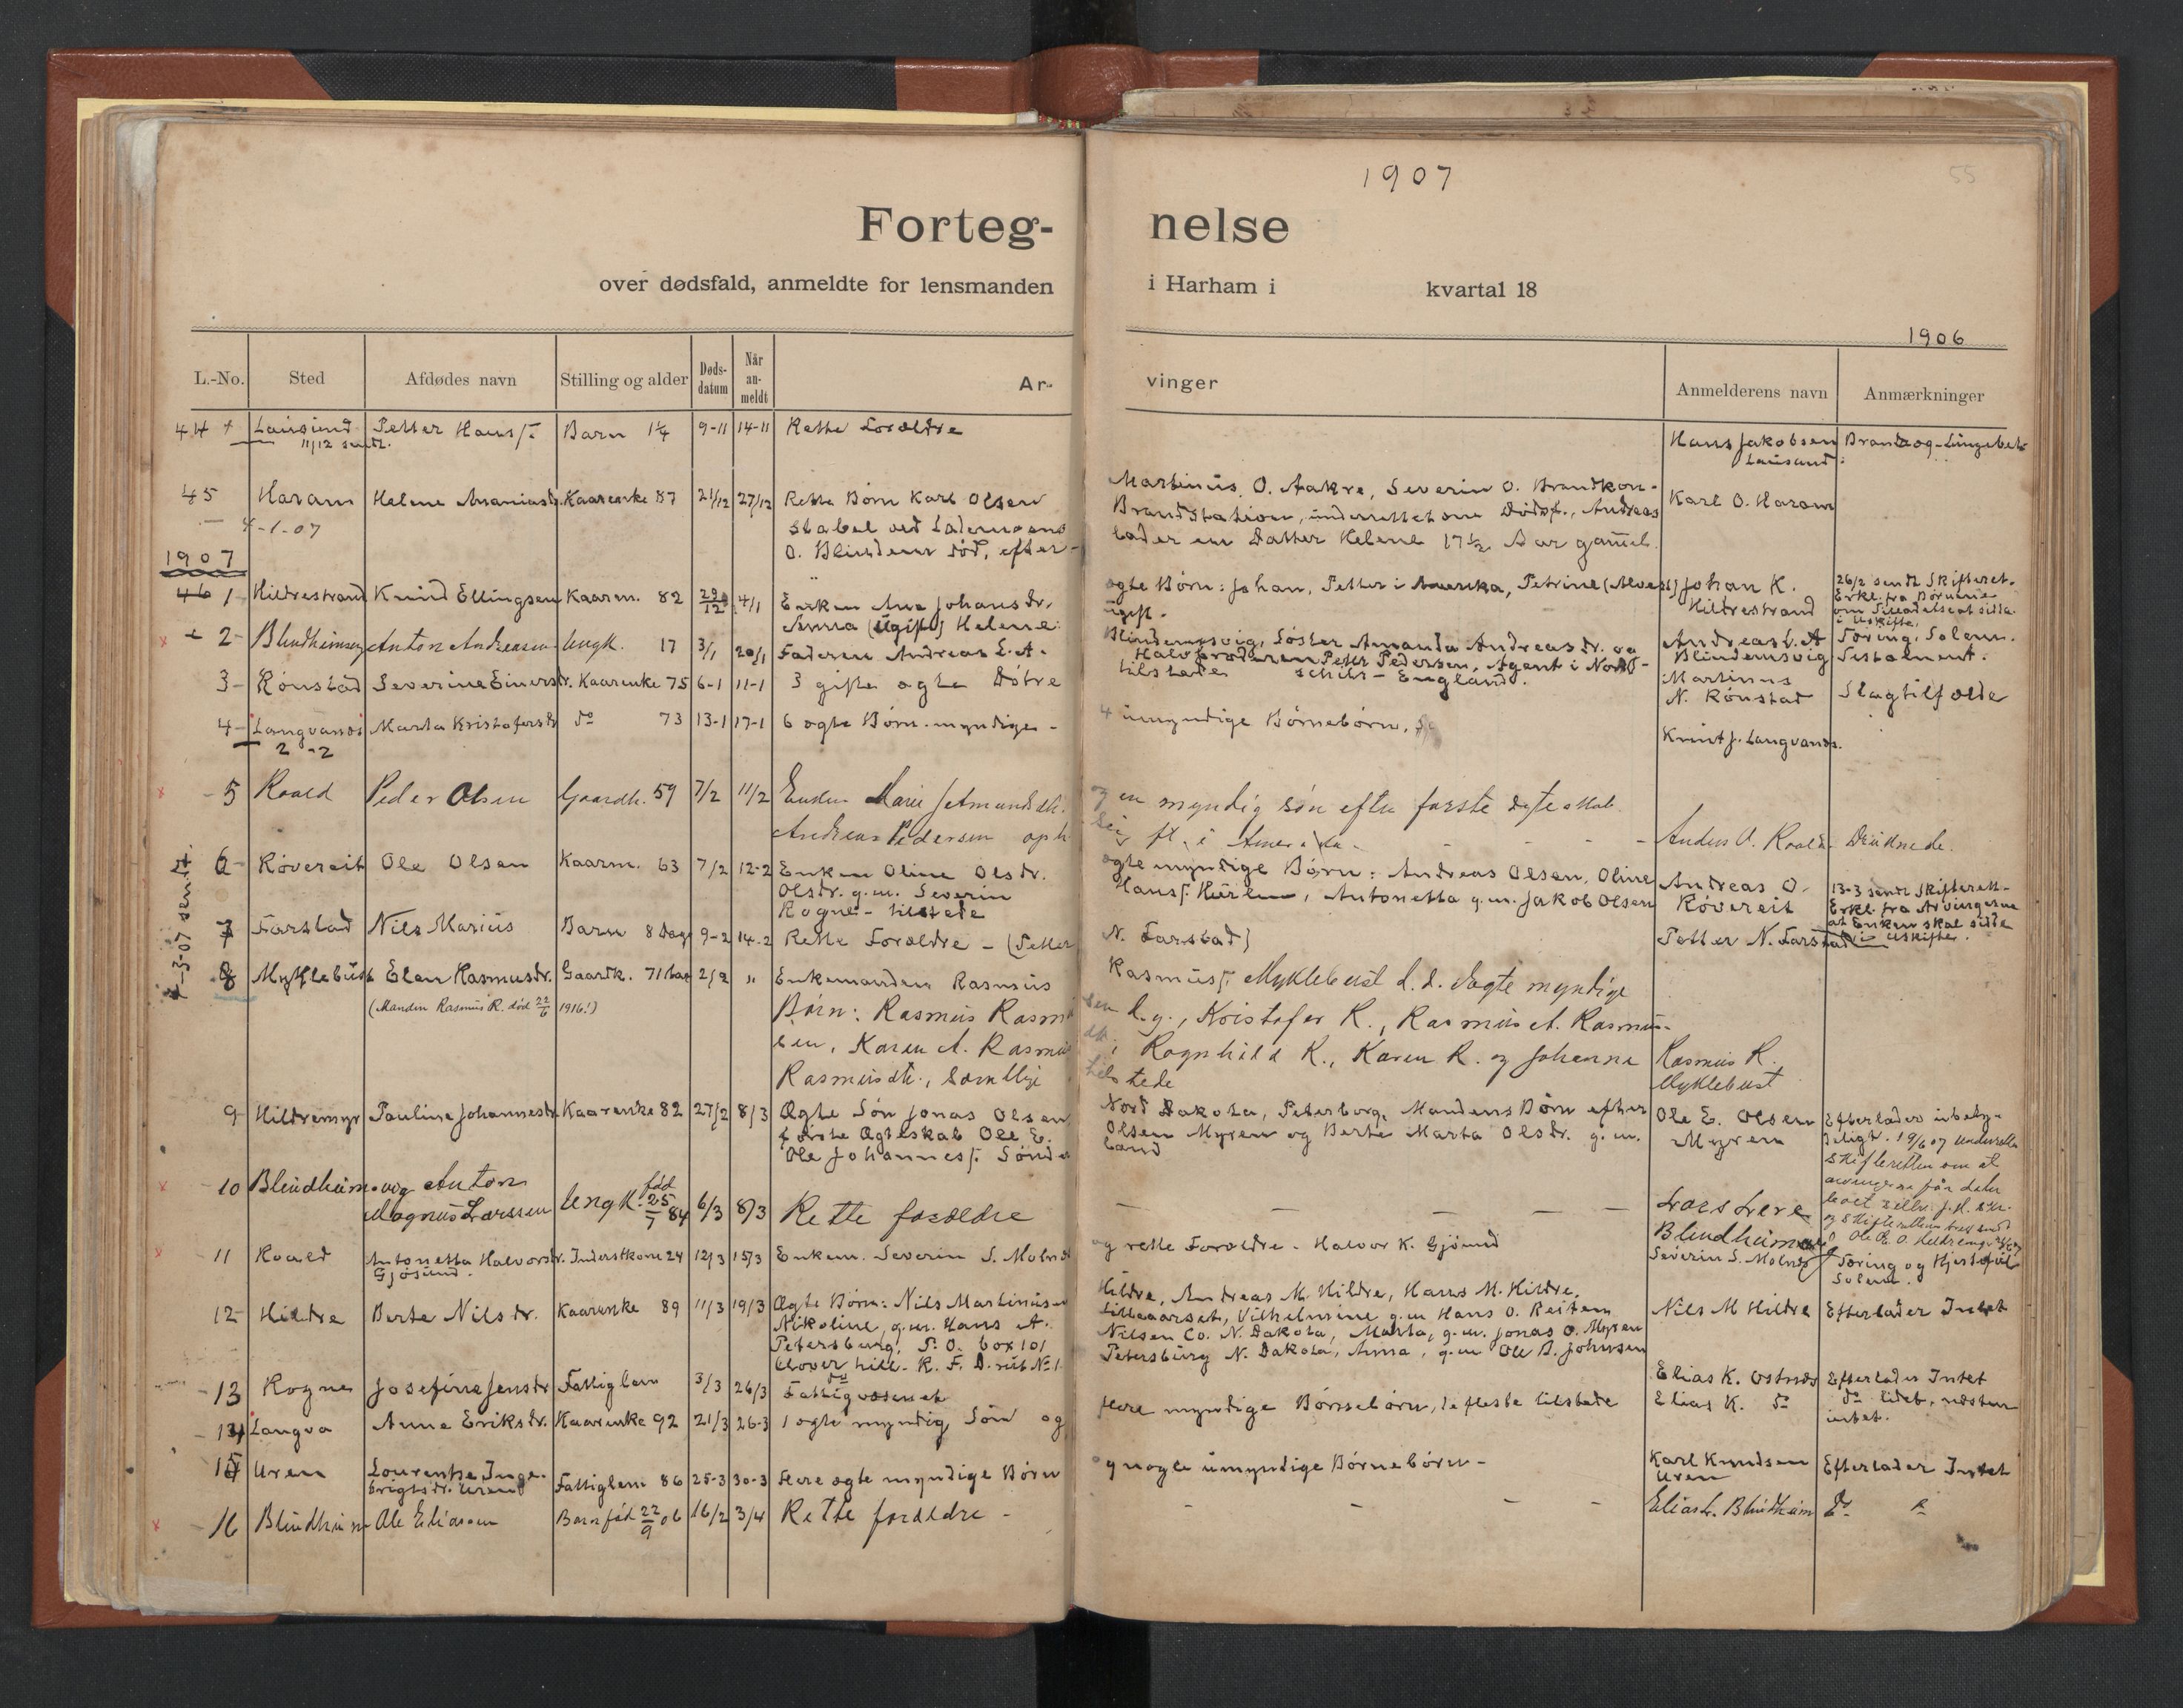 1907
55
Forteg- nelse
over dødsfald, anmeldte for lensmanden i Harham i kvartal 18
1906
L.-No. Sted Afdødes navn Stilling og alder Døds-datum Når an-meldt Ar- vinger Anmelderens navn Anmærkninger
44 + Lausund Petter Hans s. Barn 1¼ 9-11 14-11 Rette Foreldre Hans Jakobsen
11/12 sendt. Lausund
45 Haram Helene Ananiasdr. Kaarenke 87 21/12 27/12 Rette Børn Karl Olsen Martinus O. Aakre, Severin O. Brandkon- Karl O. Haram
4-1-07 stabel ved Brandstation, underrettet om Dødsf., Andreas
O. død, efter- lader en Datter Helene 17½ Aar gammel.
1907
46 1 Hildrestrand Knud Ellingsen Kaarm. 82 29/12 4/1 Enken Ane Johansdr. ægte Børn: Johan, Petter i Amerika, Petrine Johan K. 26/2 sendt Skifteret.
Anna (ugift) Helene ugift. Hildrestrand Erkl. fra Børnene
om Tilladelse at sidde
i Uskifte.
2- Blindheimsvig Anton Andreasen Ungk. 17 3/1 20/1 Faderen Andreas L. A. Blindemsvig, Søster Amanda Andreasdr. og Andreas L. A
Halvbroderen Peter Pedersen, Agent i North- Blindemsvig Testament.
3- Rønstad Severine Einersdr. Kaarenke 75 6-1 11-1 3 gifte ægte Døtre tilstæde Schils - England. Martinus
N. Rønstad Slagtilfælde
4- Langvands Marta Kristofersdr. do 73 13-1 17-1 6 ægte Børn. myndige - 4 umyndige Børnebørn.
2-2 Knut J. Langvands.
5 Roald Peder Olsen Gaardb. 59 7/2 11/2 Enken Marie J. Amundsdtr. og en myndig søn efter første ægteskab
Andreas Pedersen oph sig pt. i Amerika - - - - Anders A. Roald Druknede.
7-3-07 sendt.
6- Røvereit Ole Olsen Kaarm. 63 7/2 12-2 Enken Oline Olsdr. ægte myndige Børn: Andreas Olsen, Oline Andreas O. 13-3 sendt Skifterett-
Olsdr. g.m. Severin Hans s. , Antonetta g.m. Jakob Olsen Røvereit Erkl. fra Arvingerne
Rogne - tilstede at Enken skal sidde
i Uskifte.
7 Farstad Nils Marius Barn 8 Dage 9-2 14-2 Rette Foreldre - (Petter N. Farstad) Petter N. Farstad
8 Myklebust Elen Rasmusdr. Gaardk. 71 Aar 2/2 " Enkemanden Rasmus Rasmus s. Myklebust d. d. ægte myndige
(Manden Rasmus R. død 22/6 1916!) Børn: Rasmus Rasmussen d.y., Kristofer R., Rasmus A. Rasmus-
sen, Karen A. Rasmusdtr., Ragnhild R., Karen R. og Johanna Rasmus R.
Rasmusdtr., samtlige tilstede Myklebust
9- Hildremyr Pauline Johannesdr. Kaarenke 82 27/2 8/3 Ægte Søn Jonas Olsen Nord Dakota, Petersborg, Mandens Børn efter Ole E. Olsen Efterlader ubety-
første Ægteskab Ole E. Olsen Myren og Berte Marta Olsdr. g. m. Myren deligt. 19/6 07
Ole Johannes s. Sønde land skifteretten om at
10 Blindheimsvig Anton Magnus Larssen Ungk. fød 25/7 84 6/3 8/3 Rette forældre - - - - - Lars Lere
Blindheimsvig
11 Roald Antonetta Halvorsdr. Inderstkone 24 12/3 15/3 Enkem. Severin S. Molnes og rette Foreldre - Halvor K. Gjøsund Severin S. Molnes Tæring og Hjertefeil
Gjøsund.
12- Hildre Berte Nilsdr. Kaarenke 89 11/3 19/3 Ægte Børn: Nils Martinusen Hildre, Andreas M. Hildre, Hans M. Hildre, Nils M Hildre Efterlader Intet
Nikoline, g.m. Hans A. Lilleaarset, Vilhelmine g.m Hans O. Reiten
Petersburg, P. O. box 101 Nilsen Co. N. Dakota, Marta, g.m. Jonas O. Myren
Clover hill - R. F. D. rut No 1. Petersburg N. Dakota, Anna, g.m Ole B. Johnsen
13 Rogne Josefine Jensdr Fattiglem 3/3 26/3 Fattigvæsenet Elias K. Ostnes Efterlader Intet
14 Langva Anne Eriksdr. Kaarenke 92 21/3 26-3 1 ægte myndig Søn og flere myndige Børnebørn, de fleste tilstede Elias K. do do lidet, næsten
intet.
15 Uren Lourentse Inge- Fattiglem 86 25-3 30-3 flere ægte myndige Børn og nogle umyndige Børnebørn - Karl Knudsen Efterlader Intet
brigtsdr. Uren Uren
16 Blindheim Ole Eliassen Barn fød 22/9 06 16/2 3/4 Rette forældre - - - - - Elias L. Blindheim do